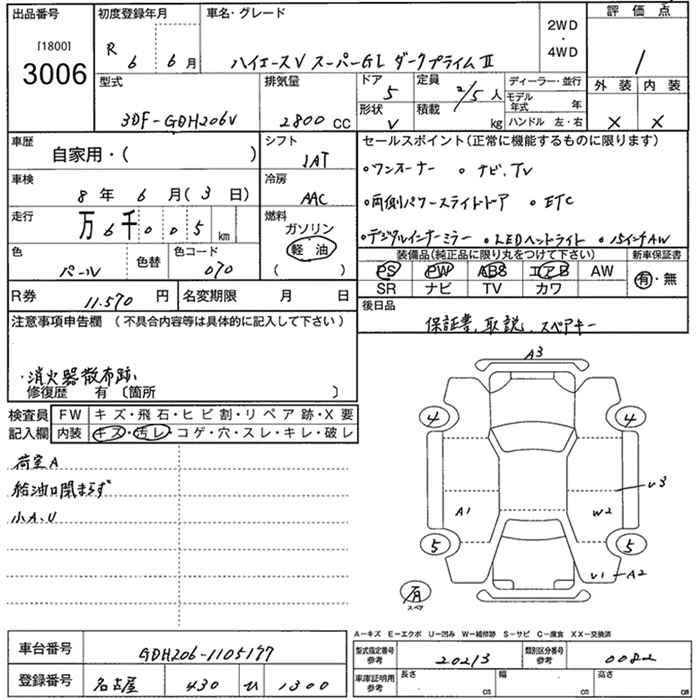 出品番号
[1800]
3006
初度登録年月
R 6 6月
車名・グレード
ハイエースV スーパーGL ダークプライムⅡ
2WD
・
4WD
評価点
/
外装 内装
× ×
型式
3DF-GDH206V
排気量
2800 CC
ドア
5
形状
V
定員
2/5 人
積載
kg
ディーラー・並行
モデル年式 年
ハンドル 左・右
車歴
自家用・( )
シフト
IAT
車検
8年 6月(3日)
冷房
AAC
走行
万6千005 km
燃料
ガソリン
軽油
( )
色
パール
色替
色コード
070
R券
11.570 円
名変期限 月 日
セールスポイント(正常に機能するものに限ります)
・ワンオーナー ・ナビ、TV
・両側パワースライドドア ・ETC
・デジタルインナーミラー ・LEDヘッドライト ・15インチAW
装備品(純正品に限り丸をつけて下さい)
PS PW ABS エアB AW
SR ナビ TV カワ
新車保証書
有・無
後日品
保証書、取説、スペアキー
注意事項申告欄 (不具合内容等は具体的に記入して下さい)
・消火器散布跡
修復歴 有 〔箇所 〕
検査員記入欄
FW キズ・飛石・ヒビ割・リペア跡・X要
内装 キズ・汚レ・コゲ・穴・スレ・キレ・破レ
荷室A
給油口閉まらず
小A、U
A3
4 4
U3
A1 W2
5 5
U1 A2
スペア
A-キズ E-エクボ U-凹み W-補修跡 S-サビ C-腐食 XX-交換済
車台番号
GDH206-1105177
登録番号
名古屋 430 ひ 1300
型式指定番号 参考
20213
類別区分番号 参考
0082
車庫証明用 参考
長さ cm
幅 cm
高さ cm